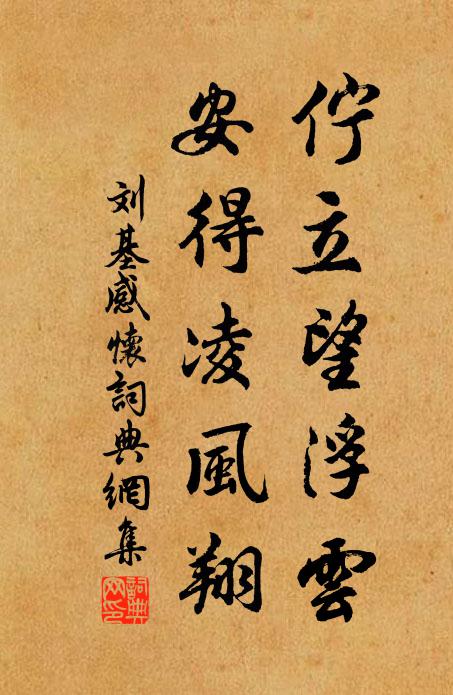 佇立望浮雲
安得凌風翔
刘基感懷詞典網集
詞典
网印